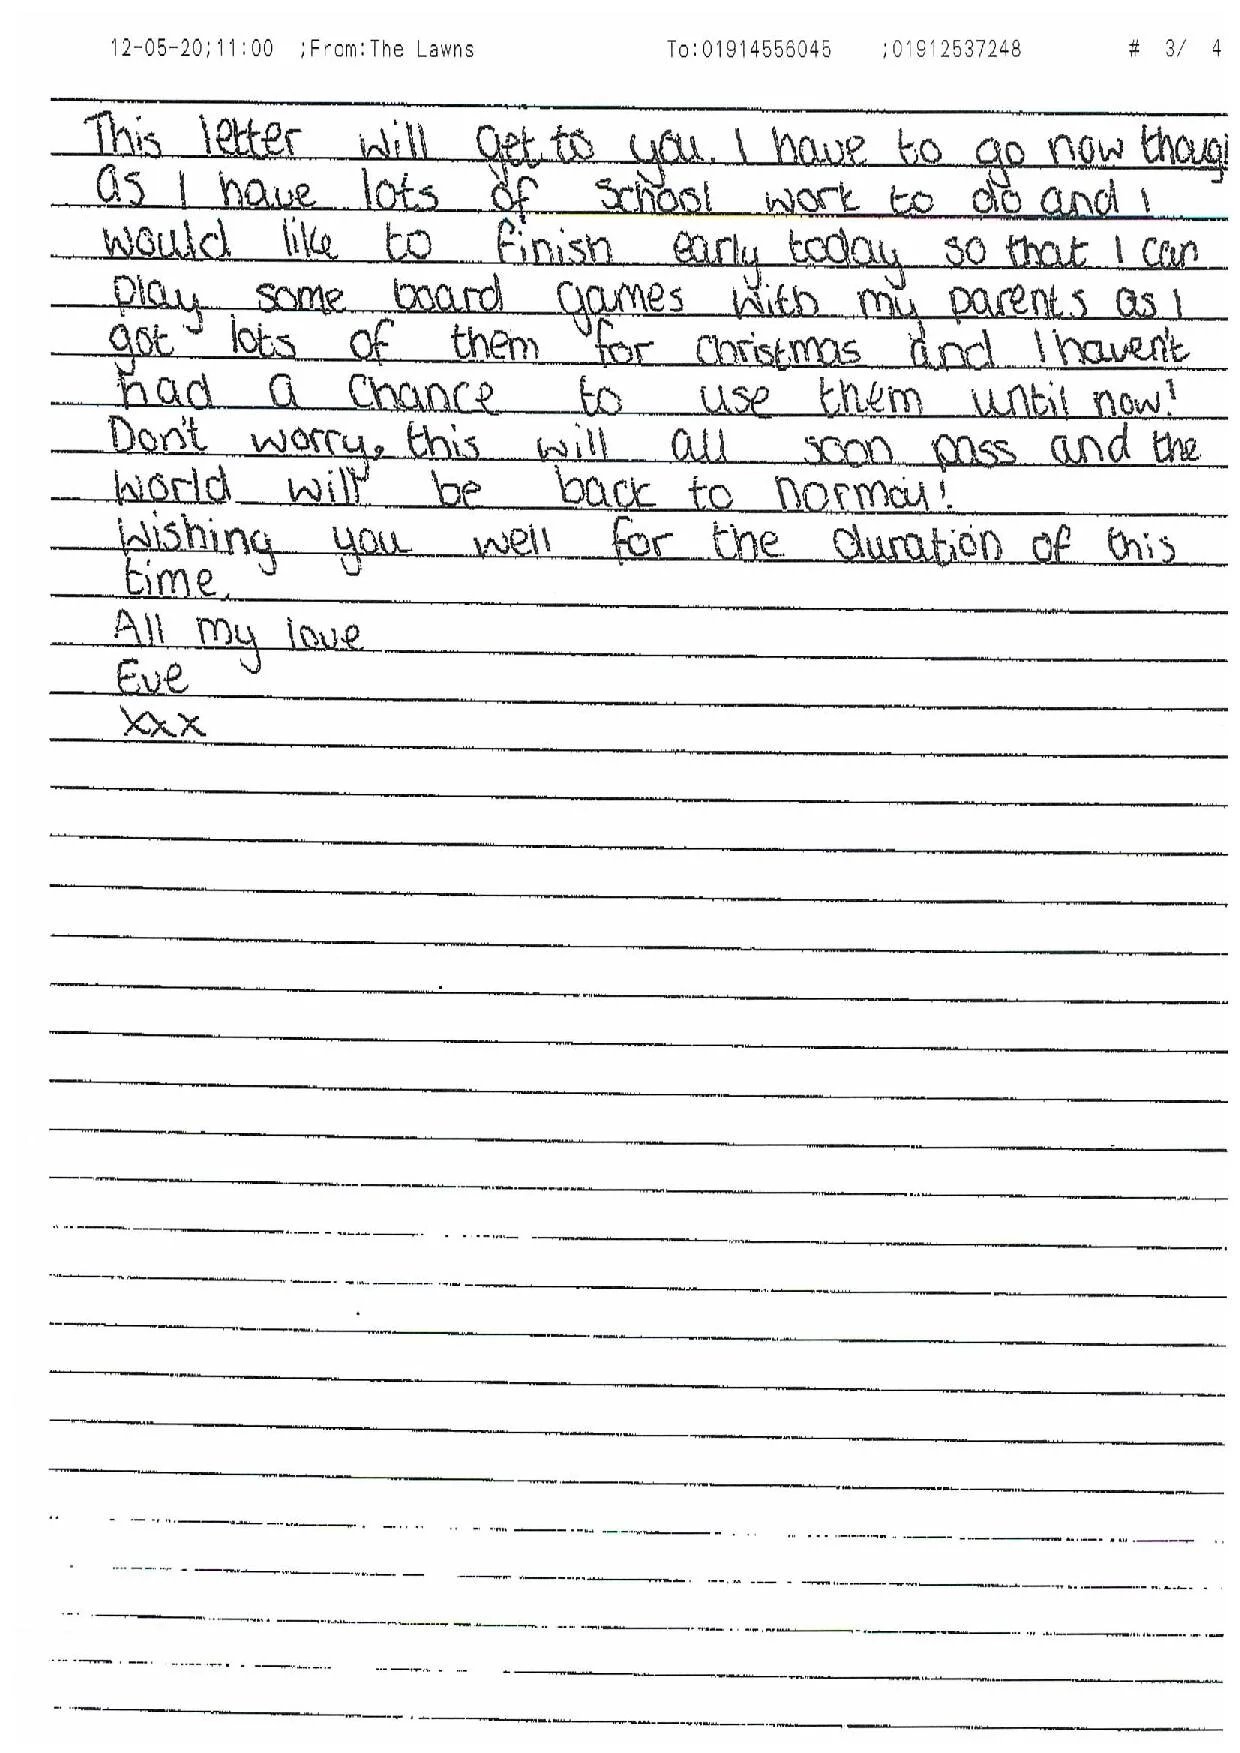 12-05-20;11:00 ;From:The Lawns To:01914556045 ;01912537248 # 3/ 4
This letter will get to you. I have to go now thoug
as I have lots of school work to do and I
would like to finish early today so that I can
play some board games with my parents as I
got lots of them for christmas and I haven't
had a chance to use them until now!
Don't worry, this will all soon pass and the
world will be back to normal!
Wishing you well for the duration of this
time.
All my love
Eve
xxx